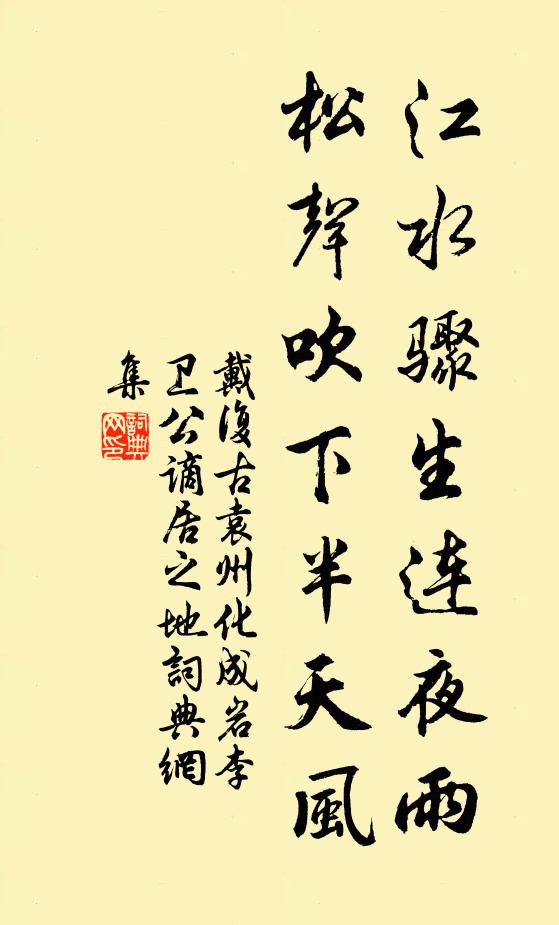 江水驟生連夜雨
松聲吹下半天風
戴復古袁州化成岩李
卫公謫居之地詞典網
集
詞典网印